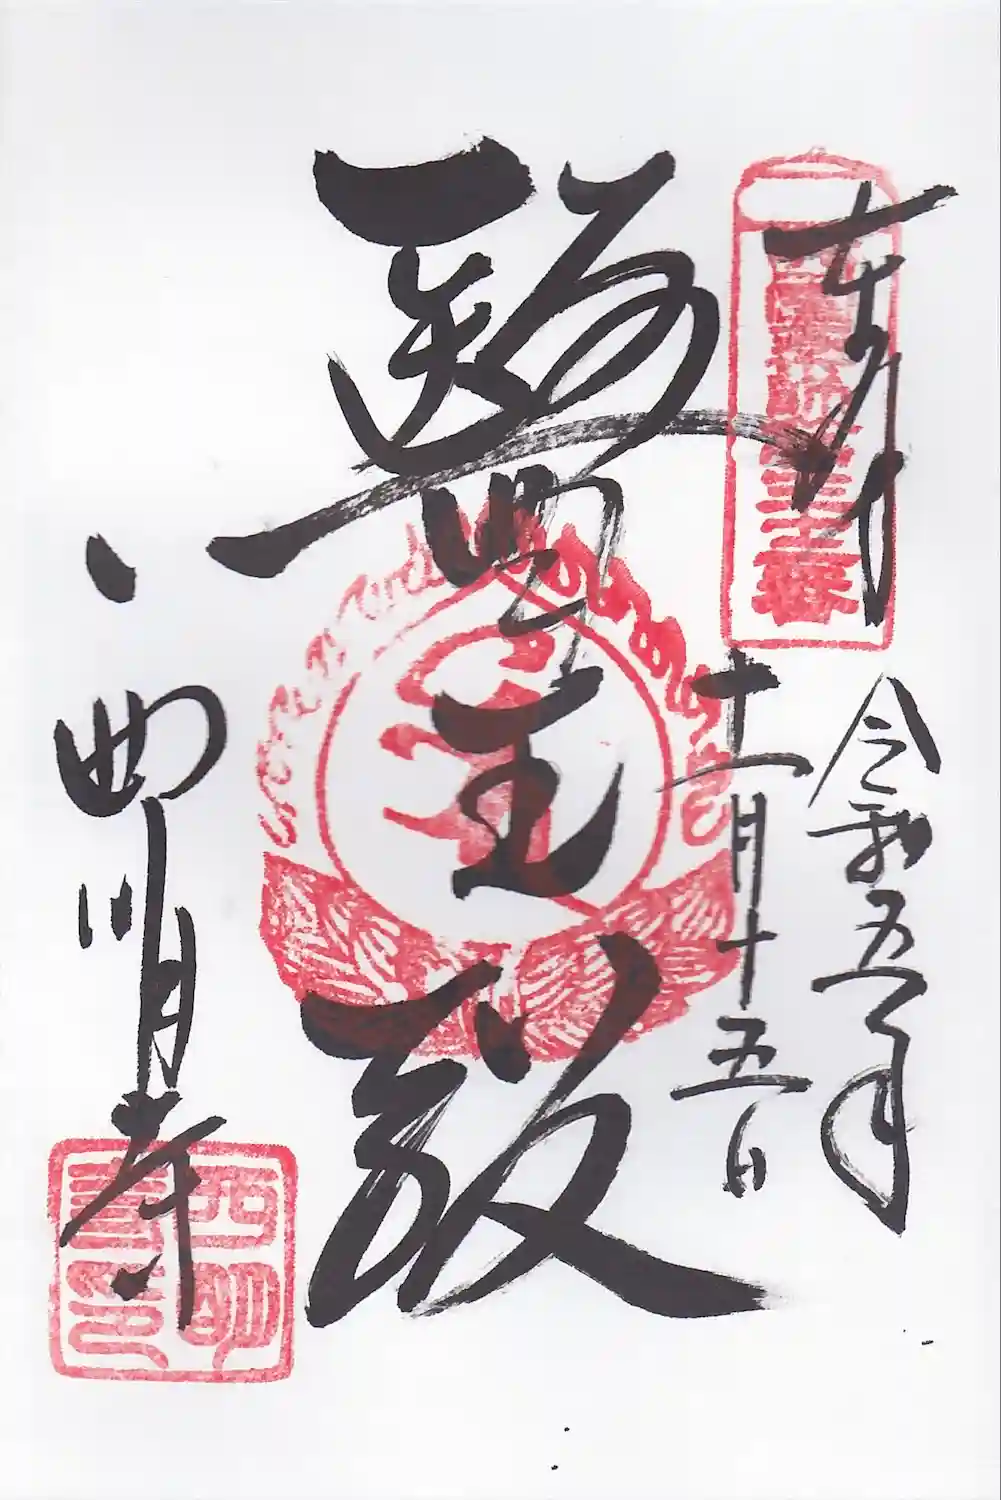 奉拝
令和五年
十一月十五日
醫王殿
西明寺
西明寺印